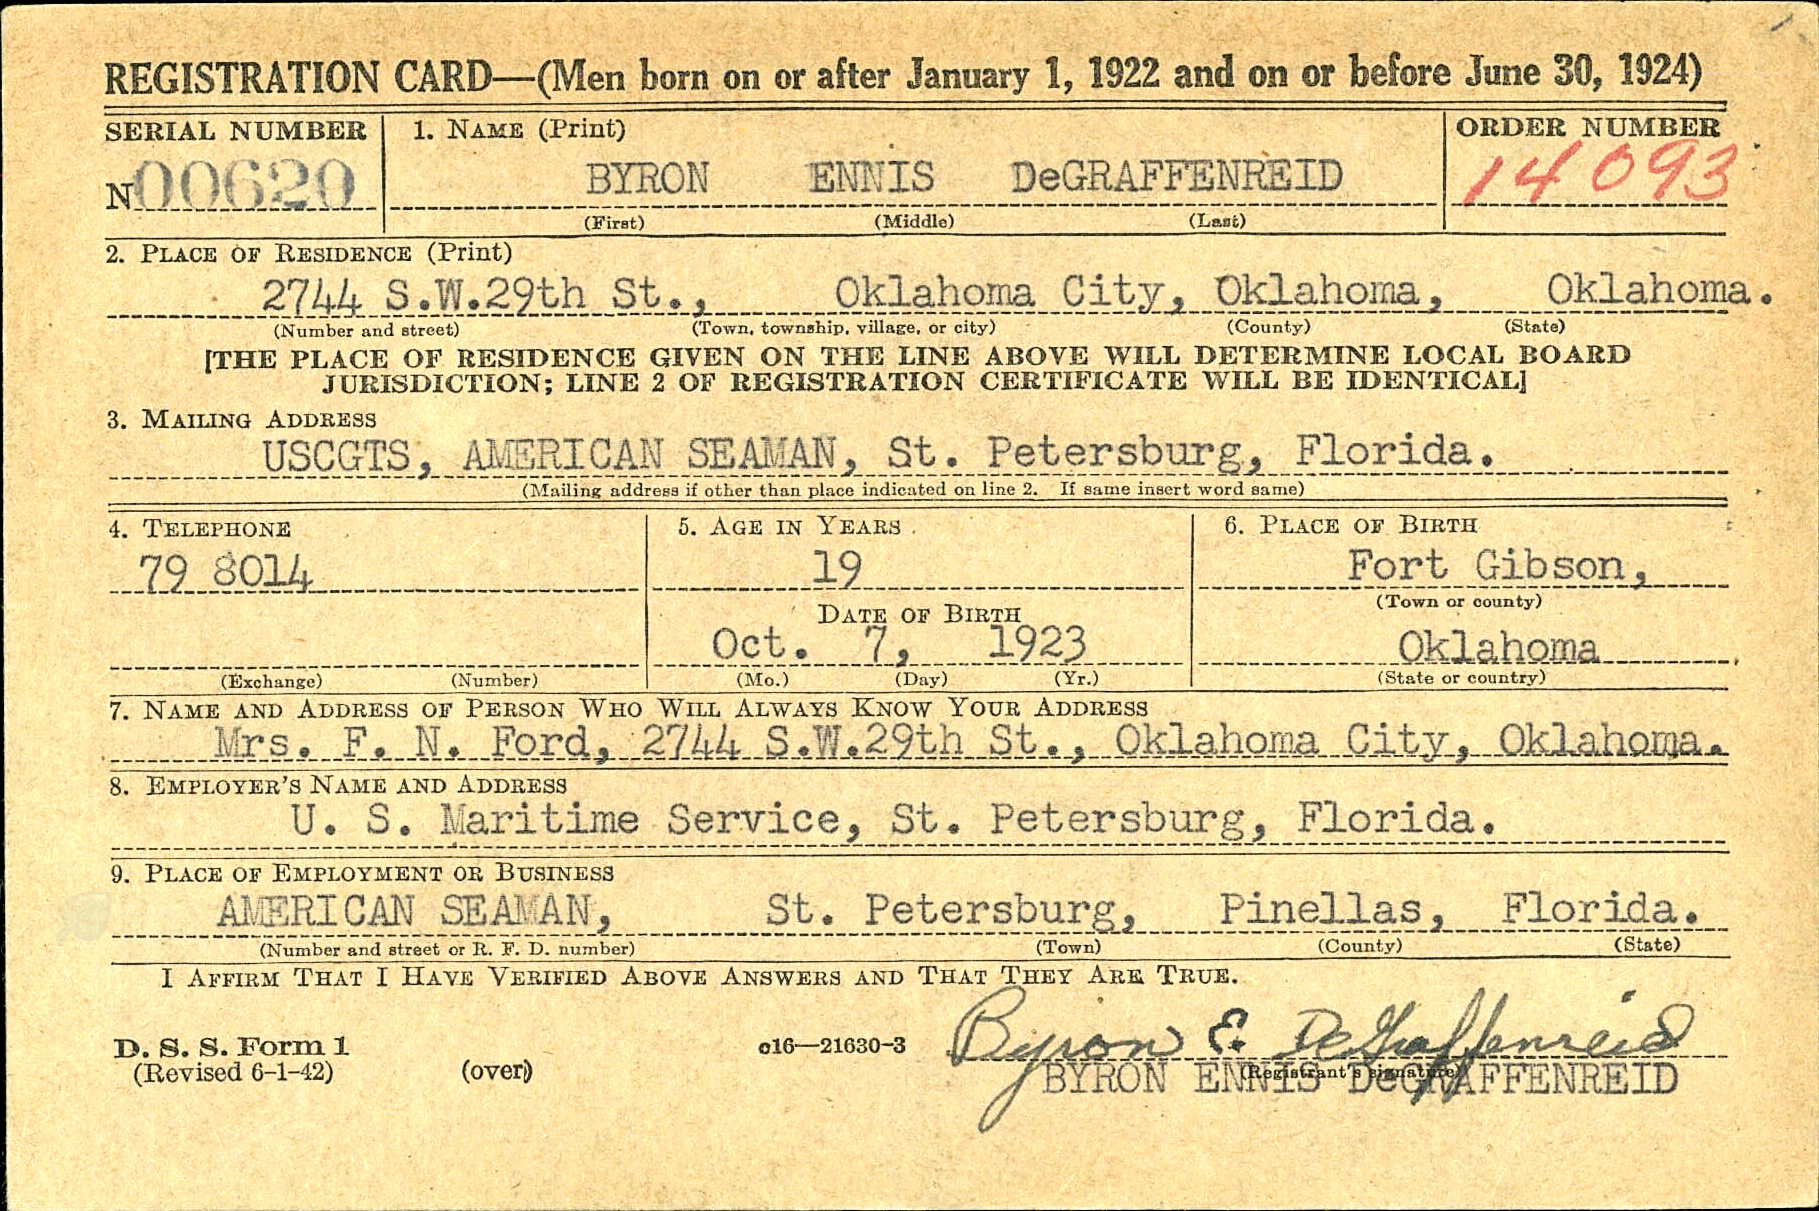 REGISTRATION CARD—(Men born on or after January 1, 1922 and on or before June 30, 1924)
SERIAL NUMBER 1. NAME (Print) ORDER NUMBER
N00620 BYRON ENNIS DeGRAFFENREID 14093
(First) (Middle) (Last)
2. PLACE OF RESIDENCE (Print)
2744 S.W.29th St., Oklahoma City, Oklahoma, Oklahoma.
(Number and street) (Town, township, village, or city) (County) (State)
[THE PLACE OF RESIDENCE GIVEN ON THE LINE ABOVE WILL DETERMINE LOCAL BOARD
JURISDICTION; LINE 2 OF REGISTRATION CERTIFICATE WILL BE IDENTICAL]
3. MAILING ADDRESS
USCGTS, AMERICAN SEAMAN, St. Petersburg, Florida.
(Mailing address if other than place indicated on line 2. If same insert word same)
4. TELEPHONE 5. AGE IN YEARS 6. PLACE OF BIRTH
79 8014 19 Fort Gibson,
(Town or county)
DATE OF BIRTH
Oct. 7, 1923 Oklahoma
(Exchange) (Number) (Mo.) (Day) (Yr.) (State or country)
7. NAME AND ADDRESS OF PERSON WHO WILL ALWAYS KNOW YOUR ADDRESS
Mrs. F. N. Ford, 2744 S.W.29th St., Oklahoma City, Oklahoma.
8. EMPLOYER'S NAME AND ADDRESS
U. S. Maritime Service, St. Petersburg, Florida.
9. PLACE OF EMPLOYMENT OR BUSINESS
AMERICAN SEAMAN, St. Petersburg, Pinellas, Florida.
(Number and street or R. F. D. number) (Town) (County) (State)
I AFFIRM THAT I HAVE VERIFIED ABOVE ANSWERS AND THAT THEY ARE TRUE.
D. S. S. Form 1 c16—21630-3 Byron E. DeGraffenreid
(Revised 6-1-42) (over) (Registrant's signature)
BYRON ENNIS DeGRAFFENREID